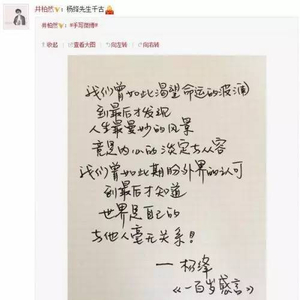 井柏然：杨绛先生千古
井柏然：#手写微博#
收起 查看大图 向左转 向右转
我们曾如此渴望命运的波澜
到最后才发现
人生最曼妙的风景
竟是内心的淡定与从容
我们曾如此期盼外界的认可
到最后才知道
世界是自己的
与他人毫无关系！
一 杨绛
《一百岁感言》